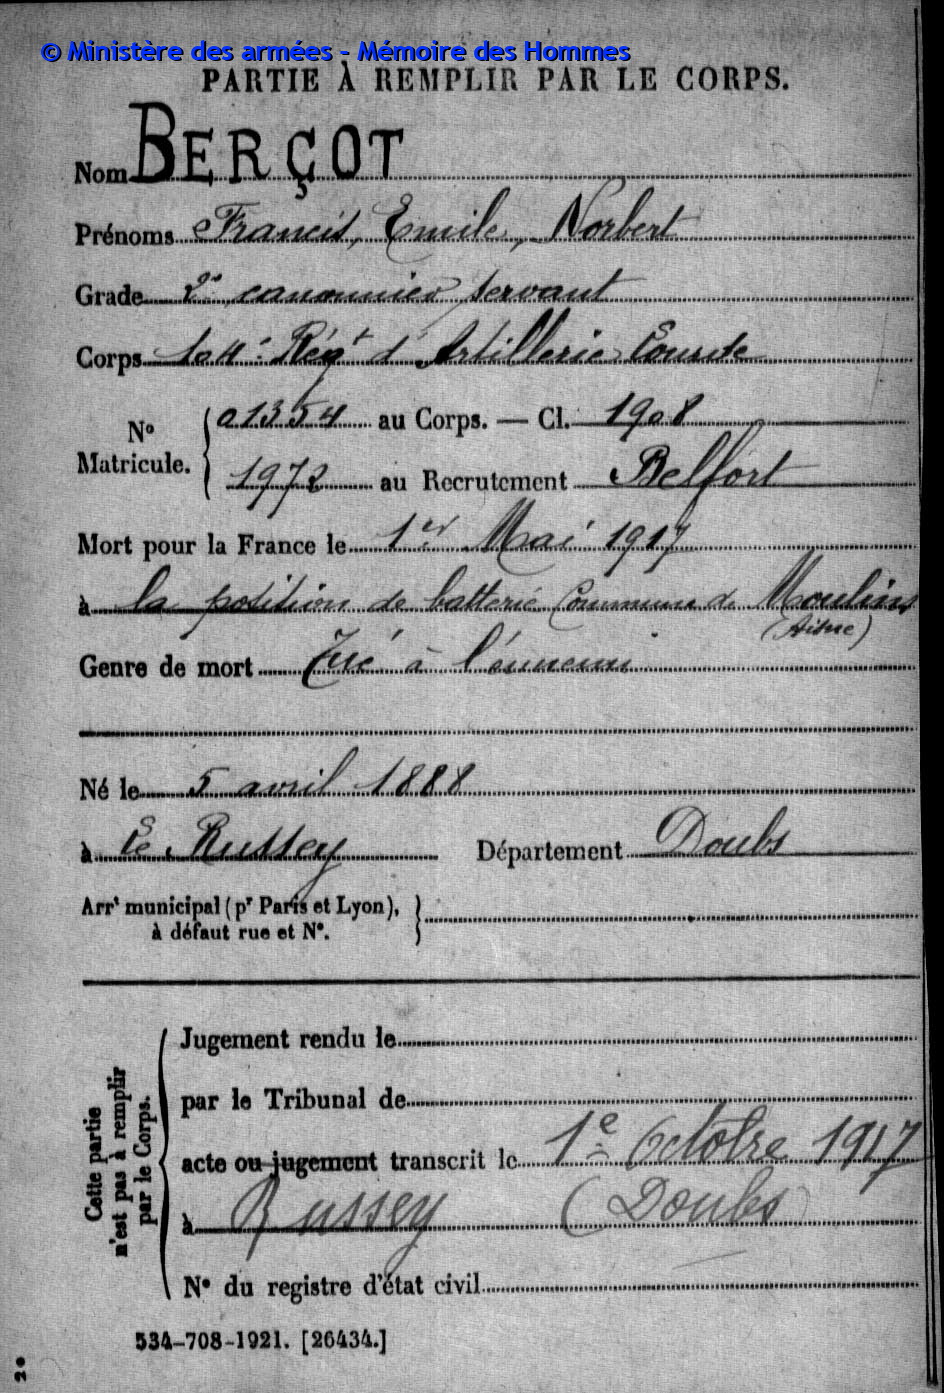 © Ministère des armées - Mémoire des Hommes
PARTIE À REMPLIR PAR LE CORPS.
Nom BERÇOT
Prénoms Francis, Emile, Norbert
Grade 2e canonnier servant
Corps 104e Régt d'Artillerie Lourde
No Matricule. { 01354 au Corps. — Cl. 1908
1972 au Recrutement Belfort
Mort pour la France le 1er Mai 1917
à la position de batterie Commune de Moulins
(Aisne)
Genre de mort Tué à l'ennemi
Né le 5 avril 1888
à Le Russey Département Doubs
Arrt municipal (pr Paris et Lyon), }
à défaut rue et No.
Cette partie n'est pas à remplir par le Corps.
Jugement rendu le
par le Tribunal de
acte ou jugement transcrit le 1e Octobre 1917
à Russey (Doubs)
No du registre d'état civil
534-708-1921. [26434.]
20